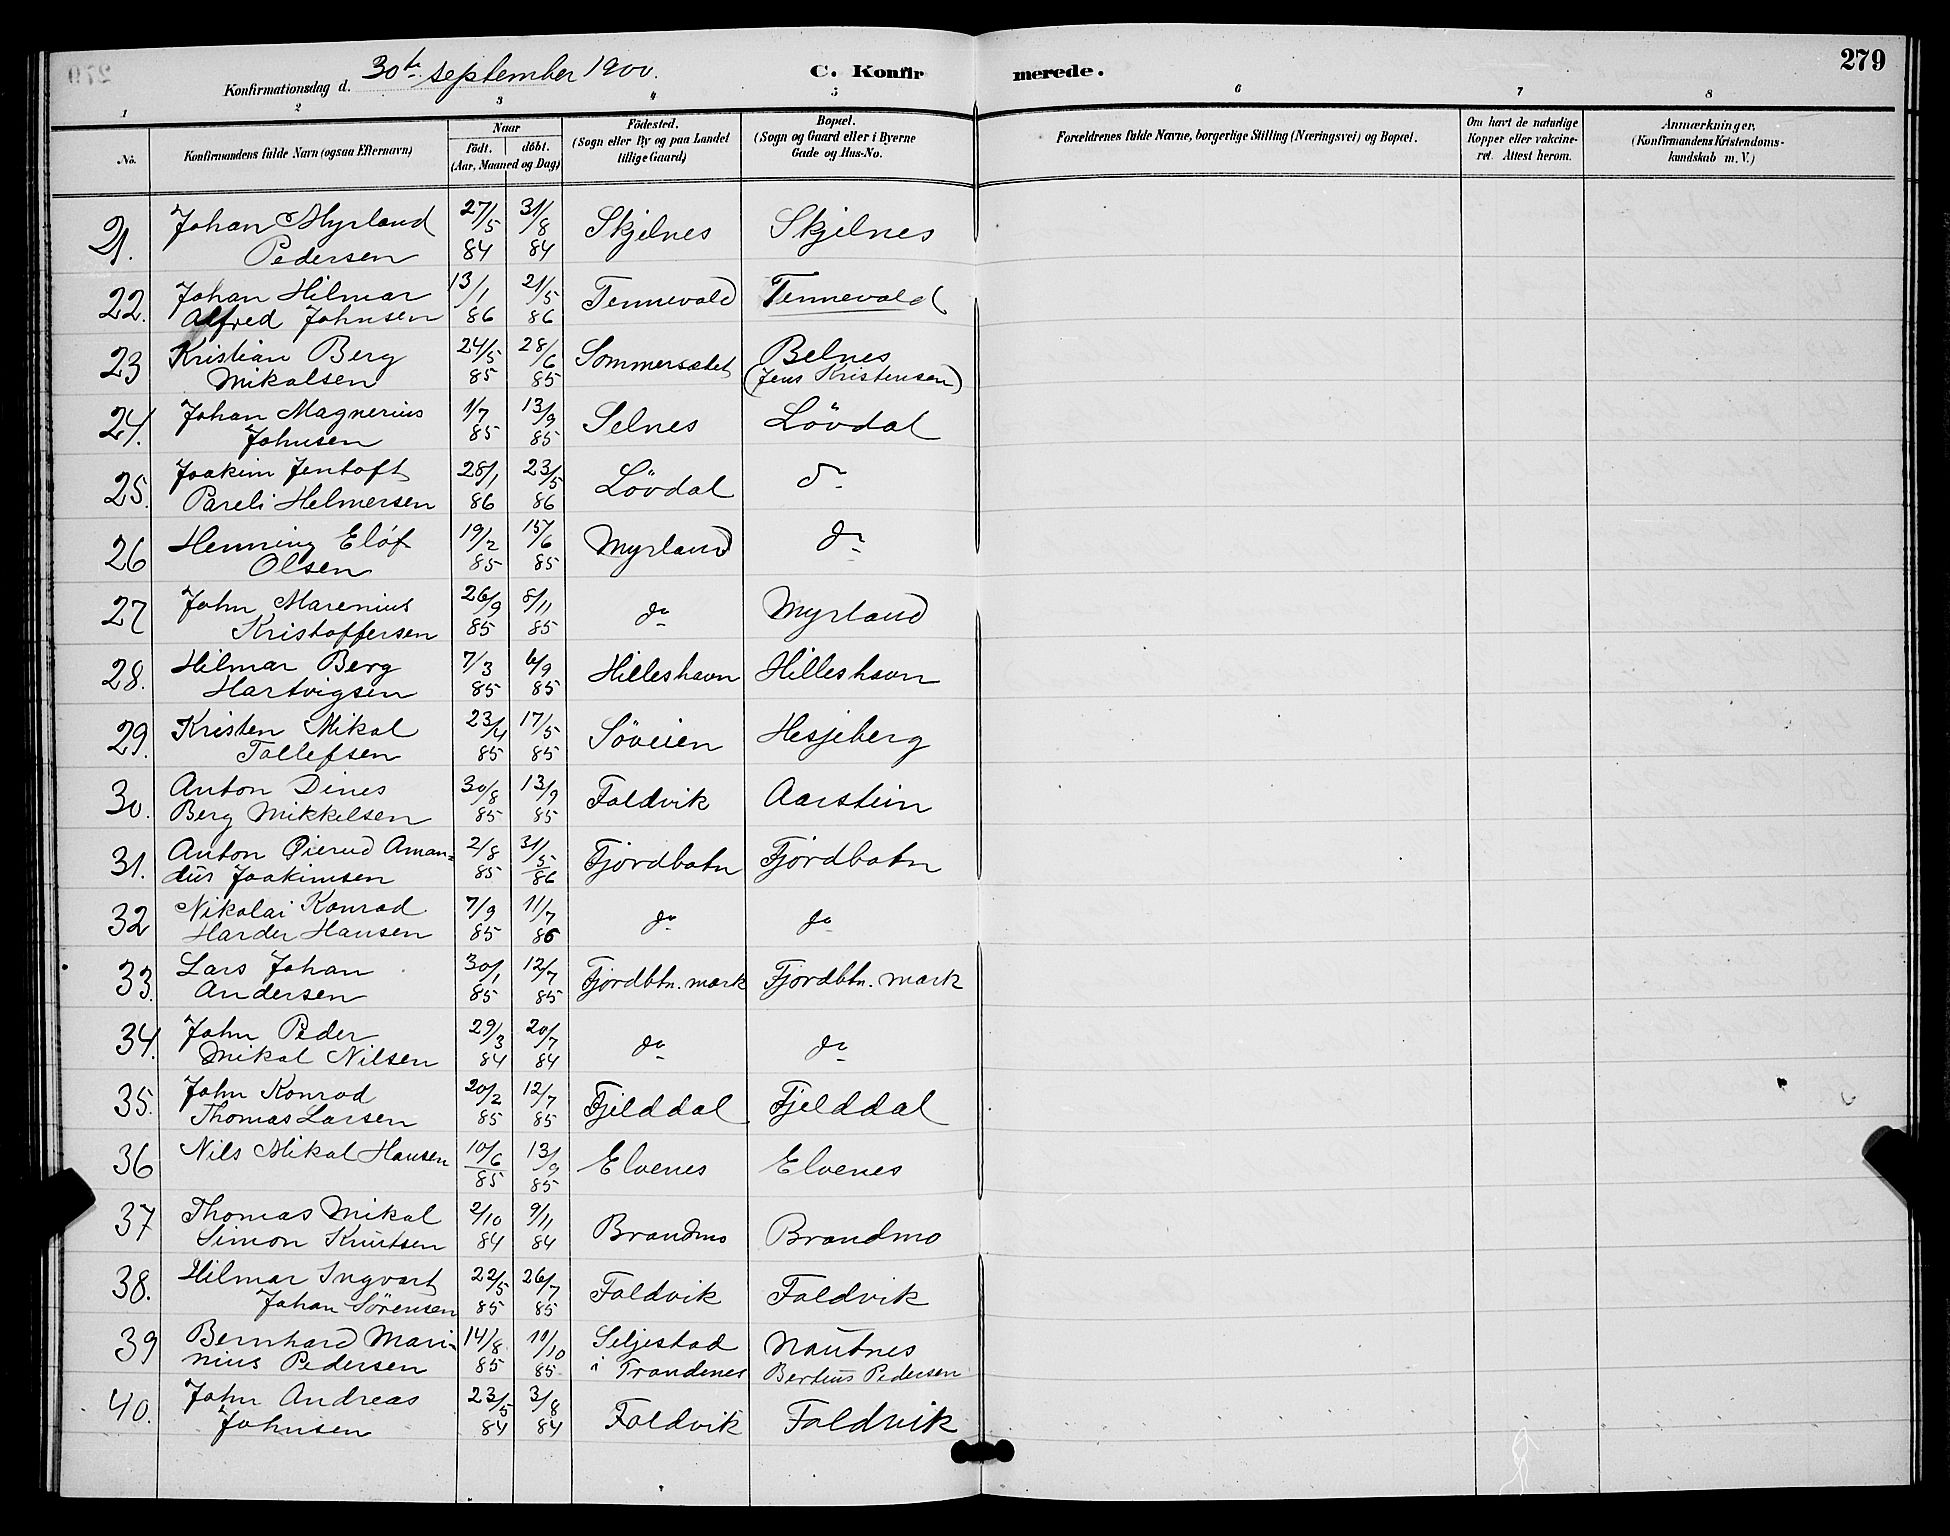 Konfirmationsdag d. 30te september 1900. C. Konfirmerede. 279
1 2 3 4 5 6 7 8
No. Konfirmandens fulde Navn (ogsaa Efternavn) Naar födt. döbt. (Aar, Maaned og Dag) Födested. (Sogn eller By og paa Landet tillige Gaard) Bopæl. (Sogn og Gaard eller i Byerne Gade og Hus-No. Forældrenes fulde Navne, borgerlige Stilling (Næringsvei) og Bopæl. Om havt de naturlige Kopper eller vakcineret. Attest herom. Anmærkninger, (Konfirmandens Kristendomskundskab m. V.)
21. Johan Myrland 27/5 31/8 Skjelnes Skjelnes
Pedersen 84 84
22. Johan Hilmar 13/1 21/5 Tennevold Tennevold
Alfred Johnsen 86 86
23 Kristian Berg 24/5 28/6 Sommersædet Belnes
Mikalsen 85 85 (Jens Kristensen)
24. Johan Magnerius 1/7 13/9 Selnes Lövdal
Johnsen 85 85
25. Joakim Jentoft 28/1 23/5 Lövdal do
Pareli Helmersen 86 86
26 Henning Elöf 19/2 /6 Myrland do
Olsen 85 85
27 John Marenius 26/9 8/11 do Myrland
Kristoffersen 85 85
28. Hilmar Berg 7/3 6/9 Hilleshavn Hilleshavn
Hartvigsen 85 85
29. Kristen Mikal 23/4 17/5 Söveien Hesjeberg
Tollefsen 85 85
30. Anton Dines 30/8 13/9 Foldvik Aarstein
Berg Mikkelsen 85 85
31. Anton Öierud Aman= 2/8 31/5 Fjordbotn Fjordbotn
dus Joakimsen 85 86
32 Nikolai Konrad 7/9 11/7 do do
Harder Hansen 85 86
33. Lars Johan 30/1 12/7 Fjordbtn. mark Fjordbtn. mark
Andersen 85 85
34. John Peder 29/3 20/7 do do
Mikal Nilsen 84 84
35. John Konrad 20/2 12/7 Fjelddal Fjelddal
Thomas Larsen 85 85
36 Nils Mikal Hansen 10/6 13/9 Elvenes Elvenes
85 85
37 Thomas Mikal 2/10 9/11 Brandmo Brandmo
Simon Knutsen 84 84
38. Hilmar Ingvart 22/5 26/7 Foldvik Foldvik
Johan Sörensen 85 85
39 Bernhard Mari= 14/8 11/10 Seljestad Nautnes
nius Pedersen 85 85 i Trondenes Berteus Pedersen
40. John Andreas 23/5 3/8 Foldvik Foldvik
Johnsen 84 84